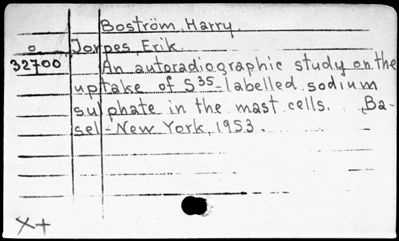 Boström, Harry.
o Jorpes, Erik.
32700 An autoradiographic study on the
uptake of S35-labelled sodium
sulphate in the mast cells. Ba-
sel - New York, 1953.
X+